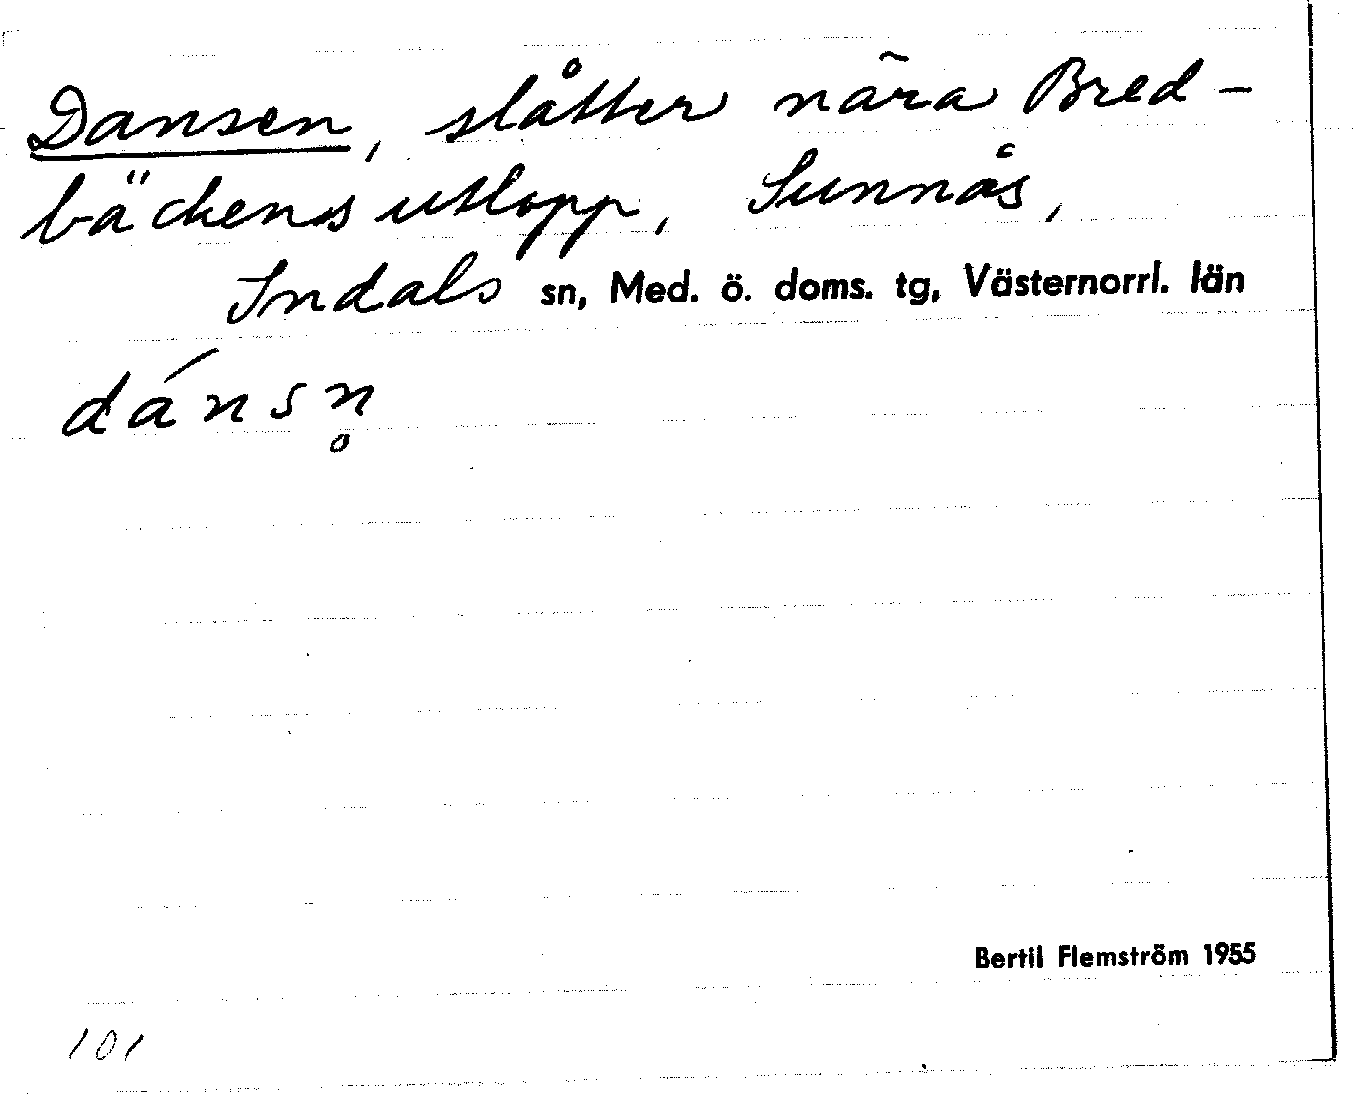 Dansen, slåtter nära Bred-
bäckens utlopp, Sunnås,
Indals sn, Med. ö. doms. tg, Västernorrl. län
dánsn̥
Bertil Flemström 1955
101